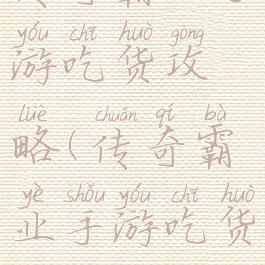 yóu chī huò gōng
游吃货攻
lüè chuán qí bà
略(传奇霸
yè shǒu yóu chī huò
业手游吃货